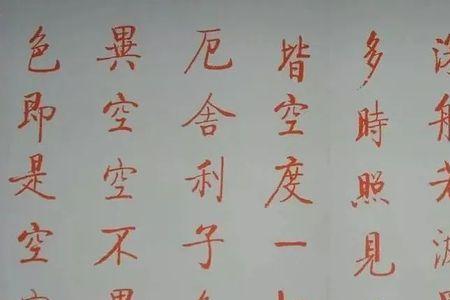 深般若波
多時照見
皆空度一
厄舍利子
異空空不異
色即是空空